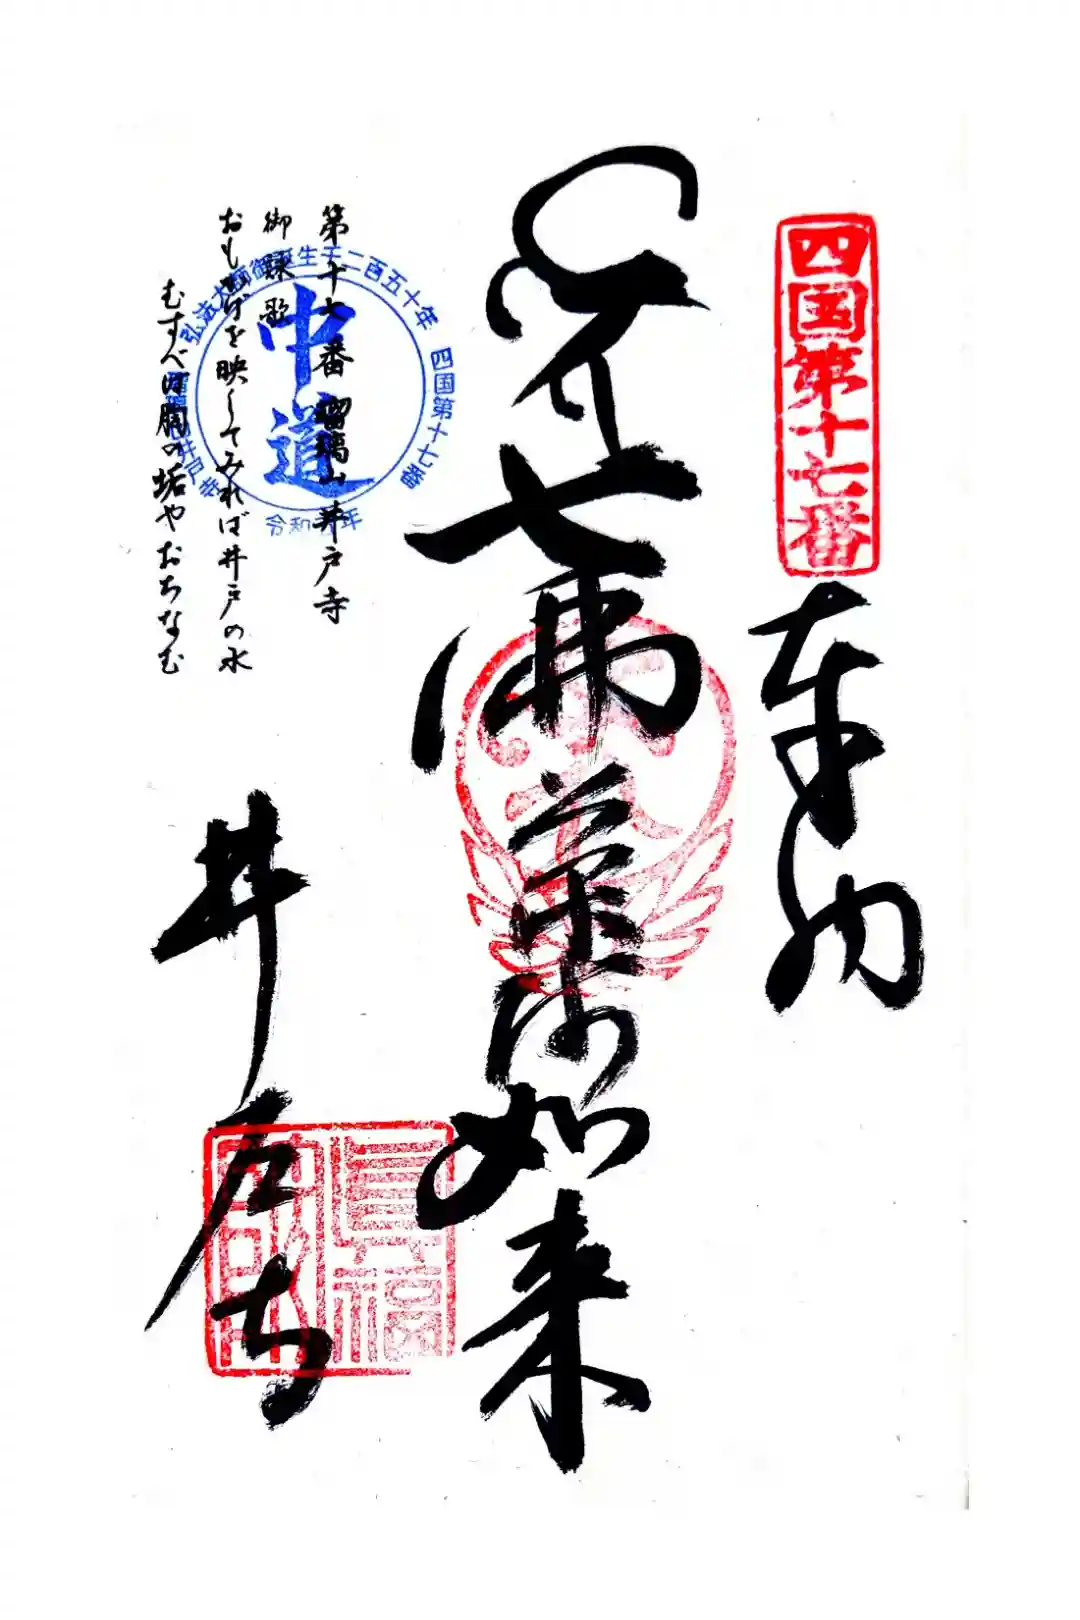 四国第十七番
奉納
七佛薬師如来
第十七番 瑠璃山 井戸寺
御詠歌
おもかげを映してみれば井戸の水
むすべば胸の垢やおちなむ
弘法大師御誕生千二百五十年 四国第十七番
中道
井戸寺